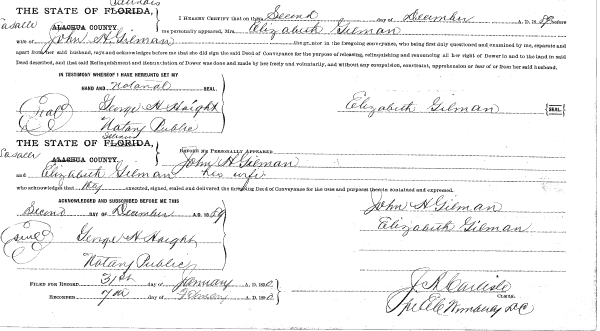 Illinois
THE STATE OF FLORIDA,
Lasalle
ALACHUA COUNTY.
I HEREBY CERTIFY that on this Second day of December A. D. 1889 before
me personally appeared, Mrs. Elizabeth Gilman
wife of John H. Gilman the grantor in the foregoing conveyance, who being first duly questioned and examined by me, separate and
apart from her said husband, says and acknowledges before me that she did sign the said Deed of Conveyance for the purpose of releasing, relinquishing and renouncing all her right of Dower in and to the land in said
Deed described, and that said Relinquishment and Renunciation of Dower was done and made by her freely and voluntarily, and without any compulsion, constraint, apprehension or fear of or from her said husband.
IN TESTIMONY WHEREOF I HAVE HEREUNTO SET MY
HAND AND Notarial SEAL.
Seal
George H Haight
Notary Public
Elizabeth Gilman SEAL
Illinois
THE STATE OF FLORIDA,
Lasalle
ALACHUA COUNTY.
BEFORE ME PERSONALLY APPEARED
John H Gilman
and Elizabeth Gilman his wife
who acknowledges that they executed, signed, sealed and delivered the foregoing Deed of Conveyance for the uses and purposes therein contained and expressed.
ACKNOWLEDGED AND SUBSCRIBED BEFORE ME THIS
Second DAY OF December A.D. 1889
Seal
George H Haight
Notary Public
John H Gilman
Elizabeth Gilman
FILED FOR RECORD 31st day of January A. D. 1890
RECORDED 7th day of February A. D. 1890
J. A. Carlisle
CLERK.